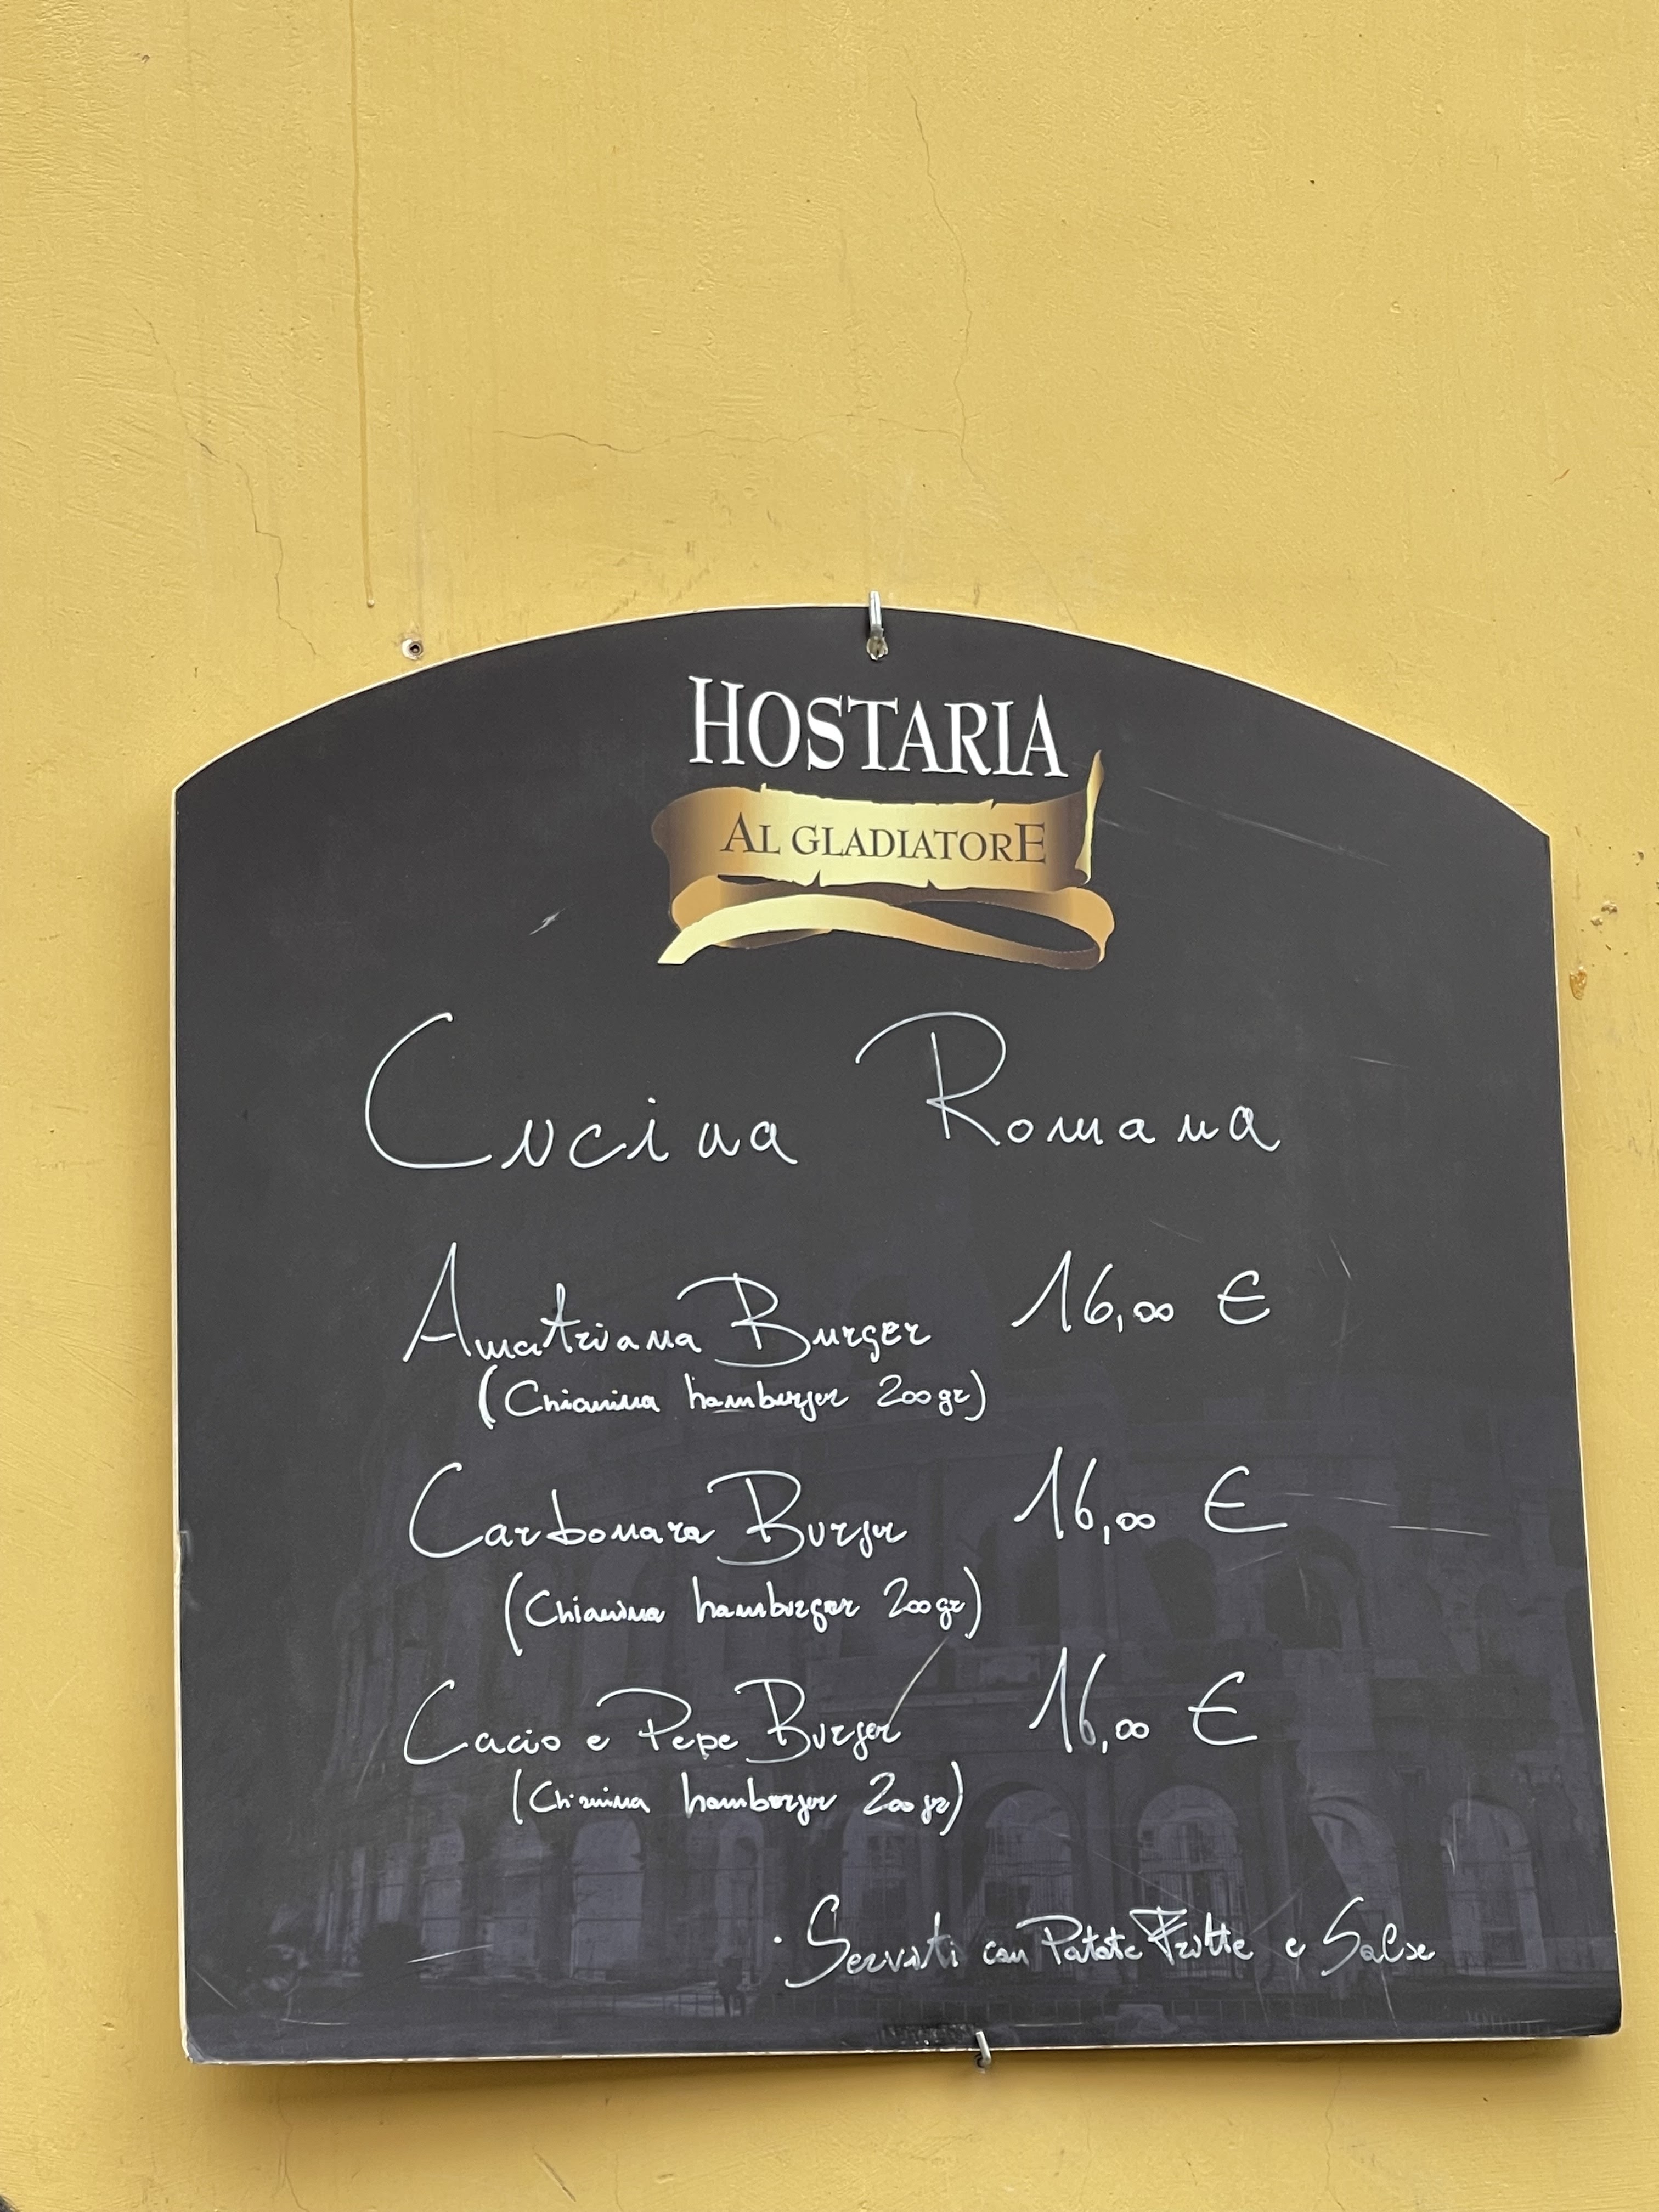 HOSTARIA
AL GLADIATORE
Cucina Romana
Amatriana Burger 16,00 €
(Chianina hamburger 200 gr)
Carbonara Burger 16,00 €
(Chianina hamburger 200 gr)
Cacio e Pepe Burger 16,00 €
(Chianina hamburger 200 gr)
· Serviti con Patate Fritte e Salse